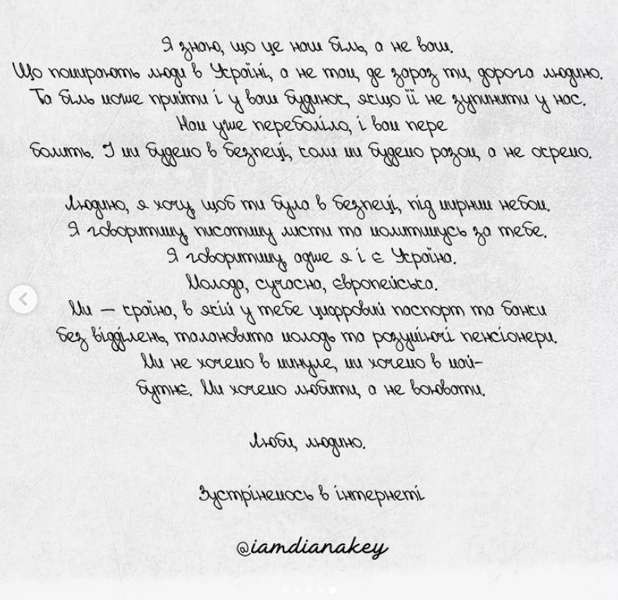 Я знаю, що це наш біль, а не ваш.
Що помирають люди в Україні, а не там, де зараз ти, дорога людино.
Та біль може прийти і у ваш будинок, якщо її не зупинити у нас.
Нам уже переболіло, і вам пере
болить. І ми будемо в безпеці, коли ми будемо разом, а не окремо.
Людино, я хочу, щоб ти була в безпеці, під мирним небом.
Я говоритиму, писатиму листи та молитимусь за тебе.
Я говоритиму, адже я і є Україна.
Молода, сучасна, європейська.
Ми — країна, в якій у тебе цифровий паспорт та банки
без відділень, талановита молодь та розуміючі пенсіонери.
Ми не хочемо в минуле, ми хочемо в май-
бутнє. Ми хочемо любити, а не воювати.
Люби, людино.
Зустрінемось в інтернеті
@iamdianakey